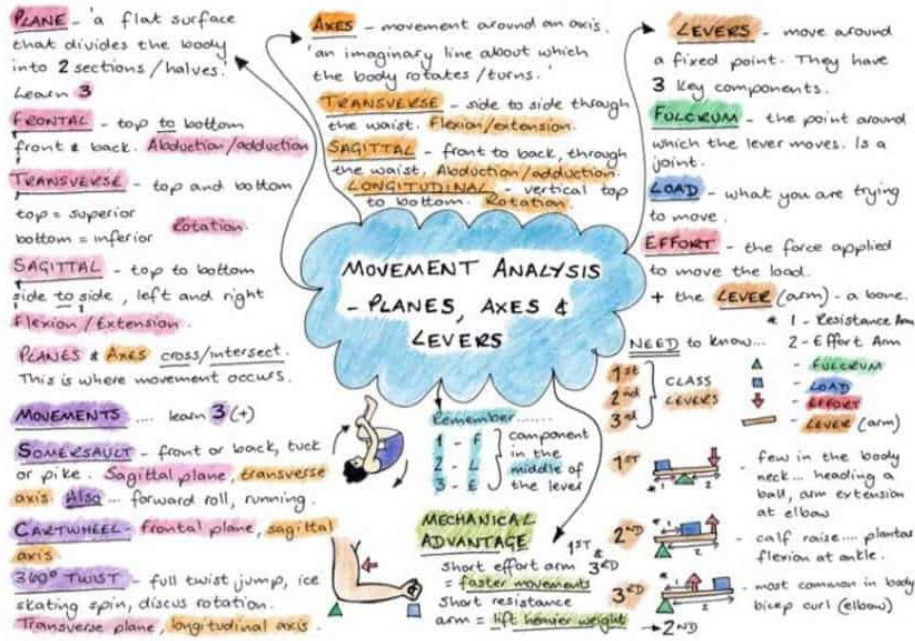 PLANE - 'a flat surface
that divides the body
into 2 sections/halves.'
Learn 3
FRONTAL - top to bottom
front & back. Abduction/adduction
TRANSVERSE - top and bottom
top = superior
bottom = inferior Rotation.
SAGITTAL - top to bottom
side to side, left and right
Flexion/Extension.
PLANES & AXES cross/intersect.
This is where movement occurs.
MOVEMENTS .... learn 3(+)
SOMERSAULT - front or back, tuck
or pike. Sagittal plane, transverse
axis. Also ... forward roll, running.
CARTWHEEL - frontal plane, sagittal
axis.
360° TWIST - full twist jump, ice
skating spin, discus rotation.
Transverse plane, longitudinal axis.
AXES - movement around an axis.
'an imaginary line about which
the body rotates/turns.'
TRANSVERSE - side to side through
the waist. Flexion/extension.
SAGITTAL - front to back, through
the waist, Abduction/adduction.
LONGITUDINAL - vertical top
to bottom. Rotation.
MOVEMENT ANALYSIS
- PLANES, AXES &
LEVERS
Remember.......
1 - F
2 - L
3 - E
component
in the
middle of
the lever
MECHANICAL
ADVANTAGE
1ST
&
3RD
short effort arm
= faster movements
Short resistance
arm = lift heavier weight
→ 2ND
LEVERS - move around
a fixed point. They have
3 Key components.
FULCRUM - the point around
which the lever moves. Is a
joint.
LOAD - what you are trying
to move.
EFFORT - the force applied
to move the load.
+ the LEVER (arm) - a bone.
* 1 - Resistance Arm
2 - Effort Arm
NEED to know...
1st
2nd
3rd
CLASS
LEVERS
- FULCRUM
- LOAD
- EFFORT
- LEVER (arm)
1ST
* 1
2
- few in the body
neck... heading a
ball, arm extension
at elbow
2ND
2
- calf raise.... plantar
flexion at ankle.
3RD
2
- most common in body
bicep curl (elbow)